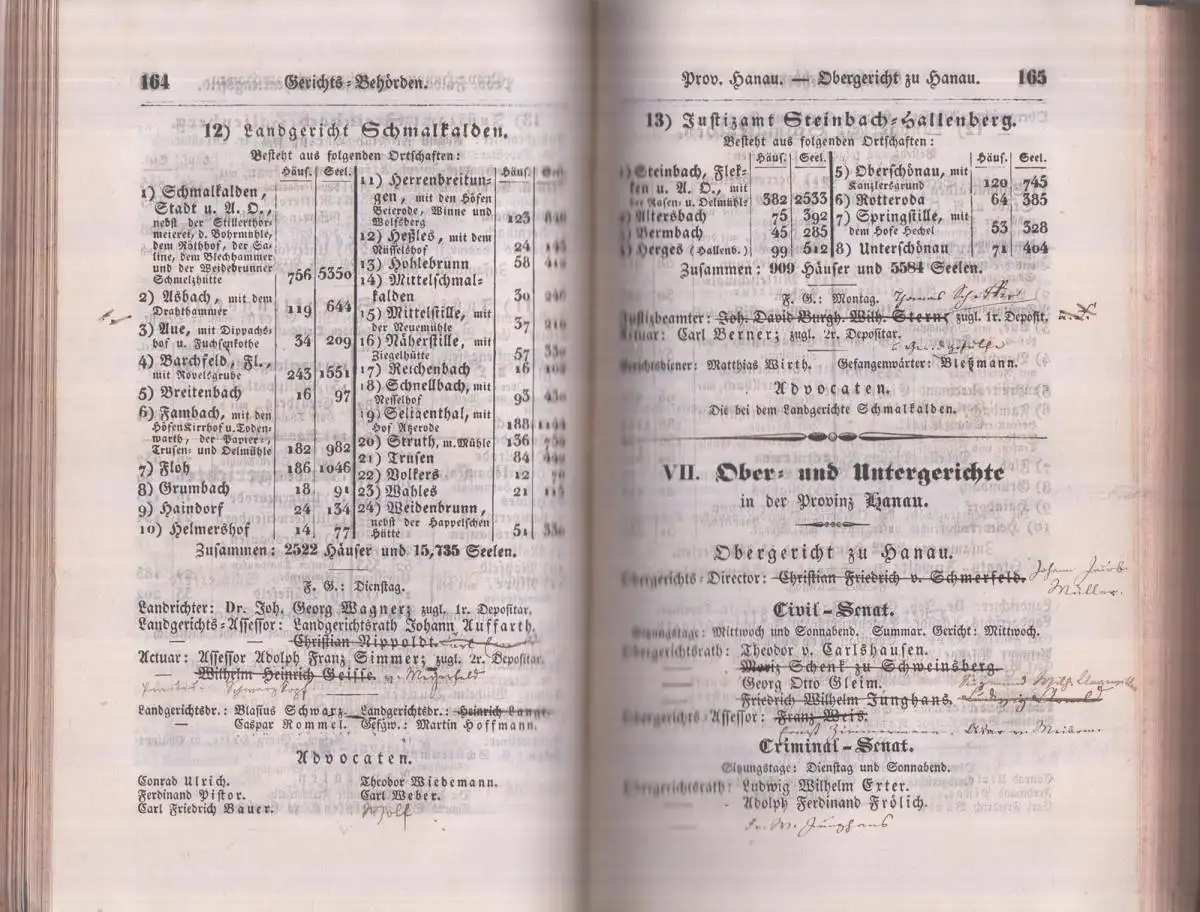 164
Gerichts-Behörden.
12) Landgericht Schmalkalden.
Besteht aus folgenden Ortschaften:
Häus. Seel.
1) Schmalkalden,
Stadt u. A. O.,
nebst der Stillerthor-
meierei, d. Bohrmühle,
dem Röthhof, der Sa-
line, dem Blechhammer
und der Weidebrunner
Schmelzhütte 756 5350
2) Asbach, mit dem
Drahthammer 119 644
3) Aue, mit Dippachs-
hof u. Fuchsenkothe 34 209
4) Barchfeld, Fl.,
mit Rovelsgrube 243 1551
5) Breitenbach 16 97
6) Fambach, mit den
Höfen Kirrhof u. Toden-
warth, der Papier-,
Trusen- und Oelmühle 182 982
7) Floh 186 1046
8) Grumbach 18 91
9) Haindorf 24 134
10) Helmershof 14 77
Häus.
11) Herrenbreitun-
gen, mit den Höfen
Beierode, Winne und
Wolfsberg 123
12) Heßles, mit dem
Nüsselshof 24
13) Hohlebrunn 58
14) Mittelschmal-
kalden 30
15) Mittelstille, mit
der Neuemühle 37
16) Näherstille, mit
Ziegelhütte 57
17) Reichenbach 16
18) Schnellbach, mit
Nesselhof 93
19) Seligenthal, mit
Hof Atzerode 188
20) Struth, m. Mühle 136
21) Trusen 84
22) Volkers 12
23) Wahles 21
24) Weidenbrunn,
nebst der Happelschen
Hütte 51
Zusammen: 2522 Häuser und 15,735 Seelen.
F. G.: Dienstag.
Landrichter: Dr. Joh. Georg Wagner; zugl. 1r. Depositar.
Landgerichts-Assessor: Landgerichtsrath Johann Auffarth.
— — Christian Nippoldt.
Actuar: Assessor Adolph Franz Simmer; zugl. 2r. Depositar.
— Wilhelm Heinrich Geisse.
Schwarzkopf
Landgerichtsdr.: Blasius Schwarz. Landgerichtsdr.: Heinrich Lange.
— Caspar Rommel. Gefgw.: Martin Hoffmann.
Advocaten.
Conrad Ulrich.
Ferdinand Pistor.
Carl Friedrich Bauer.
Theodor Wiedemann.
Carl Weber.
Wolf
Prov. Hanau. — Obergericht zu Hanau.
165
13) Justizamt Steinbach-Hallenberg.
Besteht aus folgenden Ortschaften:
Häus. Seel.
1) Steinbach, Flek-
ken u. A. O., mit
der Rasen- u. Oelmühle 382 2533
Altersbach 75 392
Bermbach 45 285
Herges (Hallenb.) 99 512
Häus. Seel.
5) Oberschönau, mit
Kanzlersgrund 120 745
6) Rotteroda 64 385
7) Springstille, mit
dem Hofe Hechel 53 328
8) Unterschönau 71 404
Zusammen: 909 Häuser und 5584 Seelen.
F. G.: Montag.
Justizbeamter: Joh. David Burgh. Wilh. Stern; zugl. 1r. Deposit.
Actuar: Carl Berner; zugl. 2r. Depositar.
Gerichtsdiener: Matthias Wirth. Gefangenwärter: Bleßmann.
Advocaten.
Die bei dem Landgerichte Schmalkalden.
VII. Ober- und Untergerichte
in der Provinz Hanau.
Obergericht zu Hanau.
Obergerichts-Director: Christian Friedrich v. Schmerfeld. Johann Jacob
Müller.
Civil-Senat.
Sitzungstage: Mittwoch und Sonnabend. Summar. Gericht: Mittwoch.
Obergerichtsrath: Theodor v. Carlshausen.
— Moriz Schenk zu Schweinsberg.
— Georg Otto Gleim.
— Friedrich Wilhelm Junghans.
Obergerichts-Assessor: Franz Weis.
Ernst Zimmermann.
Criminal-Senat.
Sitzungstage: Dienstag und Sonnabend.
Obergerichtsrath: Ludwig Wilhelm Exter.
— Adolph Ferdinand Frölich.
Fr. W. Junghans